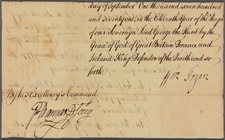 day of September One thousand seven hundred
and Seventy one in the Eleventh Year of the Reign
of our Sovereign Lord George the Third by the
Grace of God of Great Britain France and
Ireland King Defender of the Faith and so
forth
Wm Tryon
By his Excellency's Command